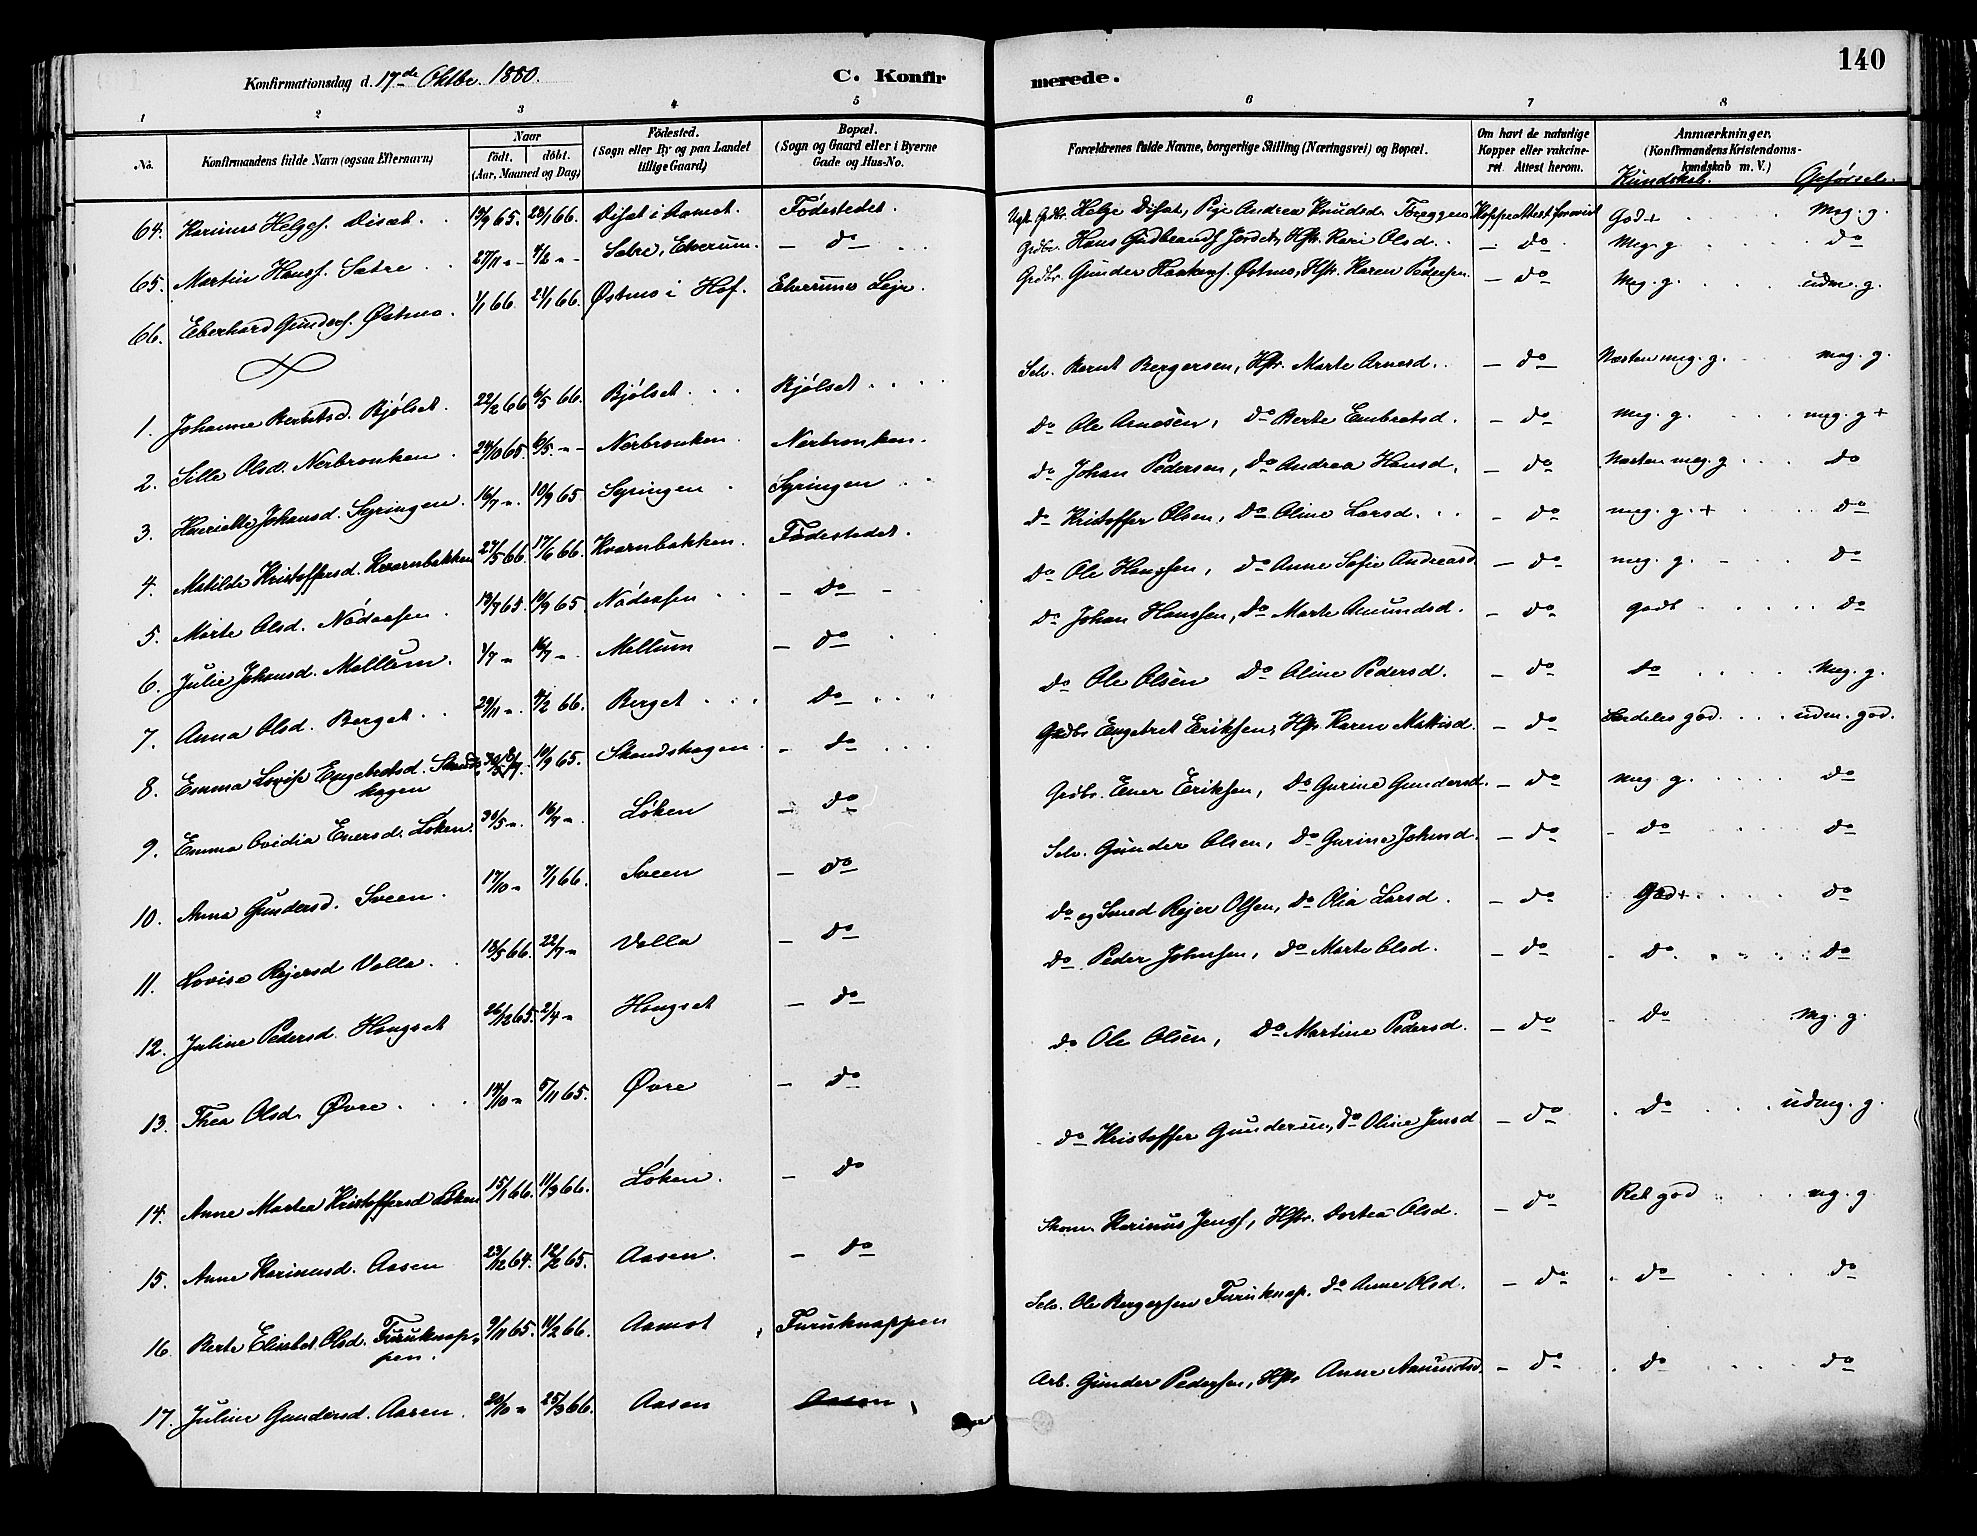 Konfirmationsdag d. 17de Oktbr. 1880. C. Konfirmerede. 140
1 2 3 4 5 6 7 8
No. Konfirmandens fulde Navn (ogsaa Efternavn) Naar födt. döbt. (Aar, Maaned og Dag) Födested. (Sogn eller By og paa Landet tillige Gaard) Bopæl. (Sogn og Gaard eller i Byerne Gade og Hus-No. Forældrenes fulde Navne, borgerlige Stilling (Næringsvei) og Bopæl. Om havt de naturlige Kopper eller vakcineret. Attest herom. Anmærkninger. (Konfirmandens Kristendomskundskab m. V.) Kundskab. Opførsel.
64. Karinus Helges. Disæt 19/9 65. 28/1 66. Disæt i Aamot. Fødestedet. Ugk. Gdbr. Helge Disæt, Pige Andrea Knudsd. Kopeattest forevist God+ Meg. g.
65. Martin Hansf. Sætre 27/11 „ 4/2 „ Sætre, Elverum. – do Grdbr. Hans Gudbrandsf. Jordet, Hstr. Kari Olsd. – do Meg. g. do
66. Eberhard Gunders. Østmo. 1/1 66. 21/1 66. Østmo i Hof. Elverums Lejr. Grdbr. Gunder Haakens. Østmo, Hstr. Karen Pedersen. – do Meg. g. udm. g.
1. Johanne Berntsd. Kjølset. 22/2 66 6/5 66. Kjølset Kjølset Selv. Bernt Bergersen, Hstr. Marte Arnesd. – do Næsten meg. g. meg. g.
2. Sille Olsd. Nerbronken 24/10 65. 6/5 „ Nerbronken Nerbronken. do Ole Arnesen, do Berte Embretsd. – do meg. g. meg. g +
3. Johansd. Syringen. 16/7 „ 10/9 65 Syringen Syringen do Johan Pedersen, do Andrea Hansd. – do Næsten meg. g do
4. Matilde Kristoffersd. Kvernbækken 27/5 66. 17/6 66. Kvernbækken. Fødestedet. do Kristoffer Olsen, do Oline Larsd. – do meg. g. + do
5. Marte Olsd. Nödaasen 19/7 65. 10/9 65. Nödaasen – do – do Ole Hansen, do Anne Sofie Andreasd – do meg. g. – do
6. Julie Johansd. Mellum. 1/7 „ 16/7 „ Mellum – do do Johan Hansen, do Marte Amundsd. – do godt do
7. Anna Olsd. Berget 29/11 „ 4/2 66. Berget do do Ole Olsen do Oline Pedersd. – do do Meg. g.
8. Emma Lovise Engebretsd. Skandshagen 10/9 65. Skandshagen – do Grdbr. Engebret Eriksen, Hstr. Karen Mathisd. – do Særdeles god. udm. god.
9. Emma Ovidia Enersd. Løken. 31/5 „ 16/7 „ Løken – do Grdbr. Ener Eriksen, do Gurine Gundersd. – do meg. g. do
10. Anna Gundersd. Sveen. 17/10 „ 7/1 66. Sveen – do Selv. Gunder Olsen, do Gurine Johnsd. – do – do do
11. Lovise Rejersd Volla. 18/5 66. 22/7 „ Volla – do do og Smed Rejer Olsen, do Olia Larsd. – do God+ do
12. Juline Pedersd. Hougset 26/12 65. 2/4 „ Hougset – do do Peder Johnsen, do Marte Olsd. – do – do do
13. Thea Olsd. Øvre. 14/10 „ 5/11 65. Øvre – do do Ole Olsen, do Martine Pedersd. – do – do Mg. g.
14. Anne Martea Kristoffersd Løken 15/1 66. 11/3 66. Løken. – do do Kristoffer Gundersen, do Oline Jensd – do do udmg. g.
15. Anne Karinusd. Aasen 23/12 64. 12/2 65. Aasen. – do Skom. Karinus Jensf, Hstr. Dortea Olsd. – do Ret god mg. g
16. Berte Elisabet Olsd. Furuknappen. 9/11 65. 11/2 66. Aamot Furuknappen Selv. Ole Bergersen Furuknap. do Anne Olsd. – do do do
17. Juline Gundersd. Aasen. 20/10 „ 25/3 66. Aasen Aasen Arb. Gunder Pedersen, Hstr Anne Amundsd. – do do do